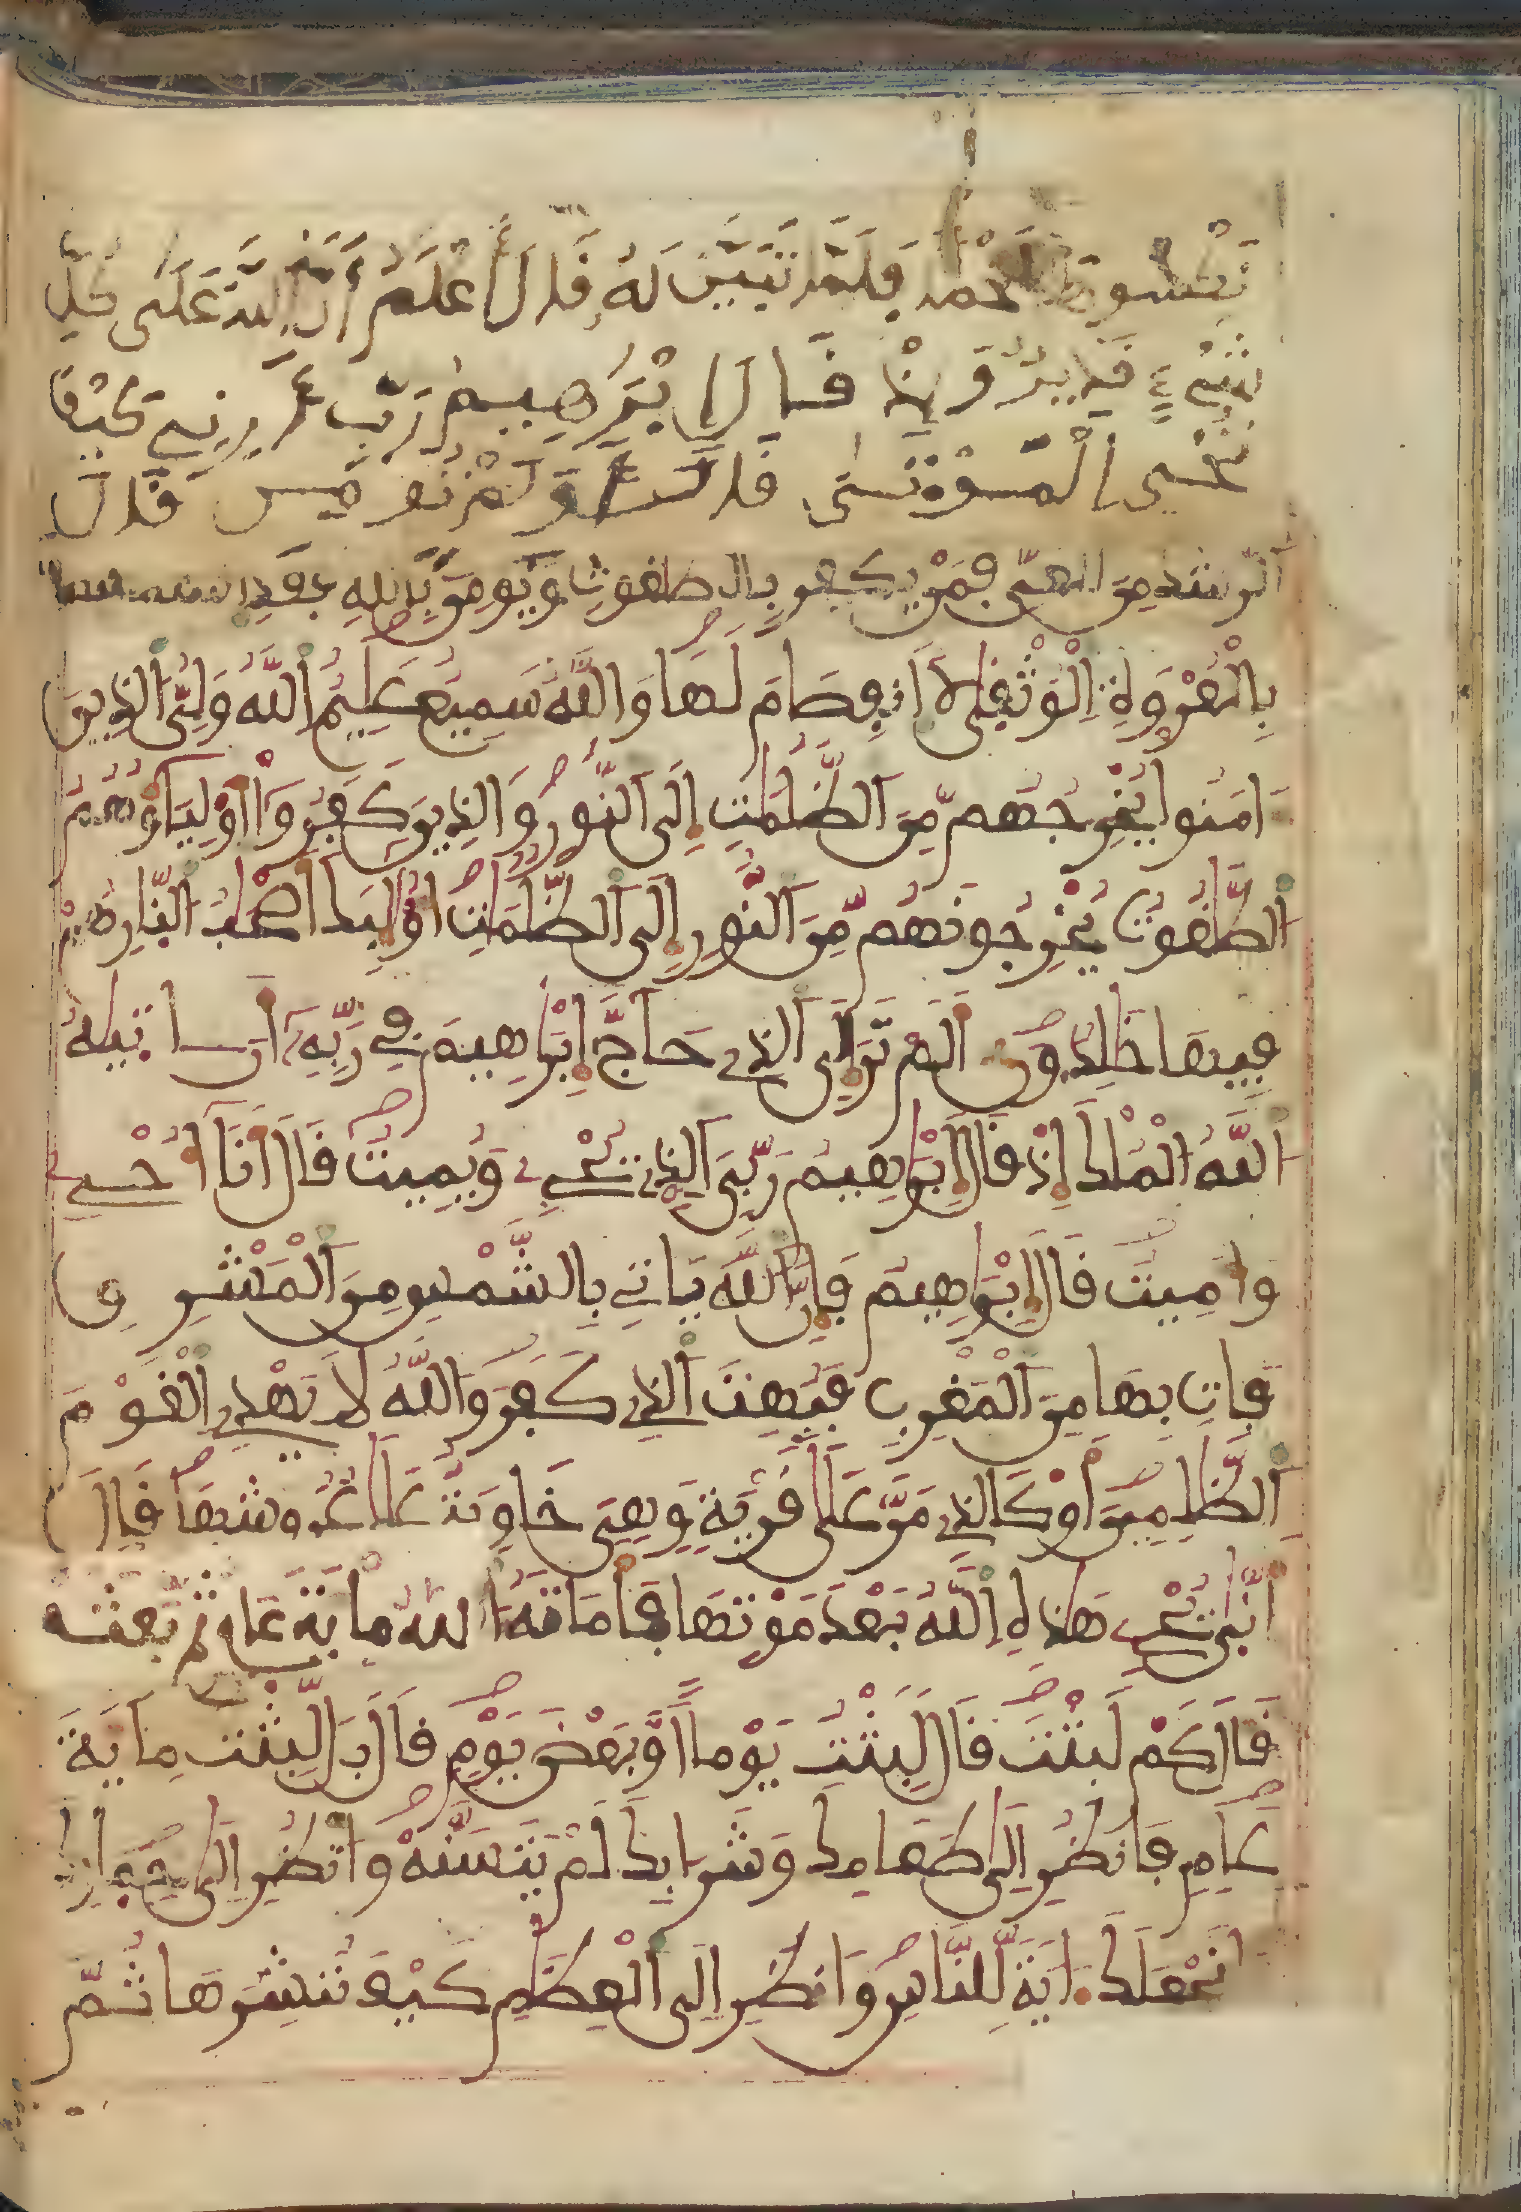 نَكْسُوهَا لَحْمًا فَلَمَّا تَبَيَّنَ لَهُ قَالَ أَعْلَمُ أَنَّ اللَّهَ عَلَى كُلِّ
شَيْءٍ قَدِيرٌ وَإِذْ قَالَ إِبْرَاهِيمُ رَبِّ أَرِنِي كَيْفَ
تُحْيِي الْمَوْتَى قَالَ أَوَلَمْ تُومِن قَالَ
الرُّشْدُ مِنَ الْغَيِّ فَمَنْ يَكْفُرْ بِالطَّاغُوتِ وَيُومِنْ بِاللَّهِ فَقَدِ اسْتَمْسَكَ
بِالْعُرْوَةِ الْوُثْقَىٰ لَا انفِصَامَ لَهَا وَاللَّهُ سَمِيعٌ عَلِيمٌ اللَّهُ وَلِيُّ الَّذِينَ
ءَامَنُوا يُخْرِجُهُم مِّنَ الظُّلُمَٰتِ إِلَى النُّورِ وَالَّذِينَ كَفَرُوا أَوْلِيَاؤُهُمُ
الطَّٰغُوتُ يُخْرِجُونَهُم مِّنَ النُّورِ إِلَى الظُّلُمَٰتِ أُوْلَٰئِكَ أَصْحَٰبُ النَّارِ هُمْ
فِيهَا خَٰلِدُونَ أَلَمْ تَرَ إِلَى الَّذِي حَاجَّ إِبْرَٰهِيمَ فِي رَبِّهِ أَنْ ءَاتَيٰهُ
اللَّهُ الْمُلْكَ إِذْ قَالَ إِبْرَٰهِيمُ رَبِّيَ الَّذِي يُحْيِي وَيُمِيتُ قَالَ أَنَا أُحْيِي
وَأُمِيتُ قَالَ إِبْرَٰهِيمُ فَإِنَّ اللَّهَ يَاتِي بِالشَّمْسِ مِنَ الْمَشْرِقِ
فَاتِ بِهَا مِنَ الْمَغْرِبِ فَبُهِتَ الَّذِي كَفَرَ وَاللَّهُ لَا يَهْدِي الْقَوْمَ
الظَّٰلِمِينَ أَوْ كَالَّذِي مَرَّ عَلَىٰ قَرْيَةٍ وَهِيَ خَاوِيَةٌ عَلَىٰ عُرُوشِهَا قَالَ
أَنَّىٰ يُحْيِي هَٰذِهِ اللَّهُ بَعْدَ مَوْتِهَا فَأَمَاتَهُ اللَّهُ مِائَةَ عَامٍ ثُمَّ بَعَثَهُ
قَالَ كَمْ لَبِثْتَ قَالَ لَبِثْتُ يَوْماً أَوْ بَعْضَ يَوْمٍ قَالَ بَل لَّبِثْتَ مِائَةَ
عَامٍ فَانظُرْ إِلَىٰ طَعَامِكَ وَشَرَابِكَ لَمْ يَتَسَنَّهْ وَانظُرْ إِلَىٰ حِمَارِكَ
وَلِنَجْعَلَكَ ءَايَةً لِّلنَّاسِ وَانظُرْ إِلَى الْعِظَٰمِ كَيْفَ نُنشِرُهَا ثُمَّ